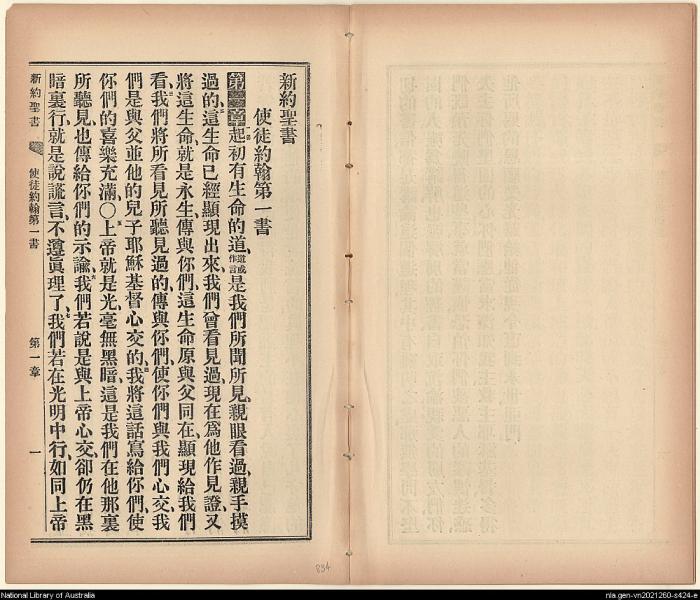 新約聖書
使徒約翰第一書
第一章起初有生命的道、道或作言是我們所聞所見、親眼看過、親手摸
過的、這生命已經顯現出來、我們曾看見過、現在爲他作見證、又
將這生命就是永生、傳與你們、這生命原與父同在、顯現給我們
看、我們將所看見所聽見過的、傳與你們、使你們與我們心交、我
們是與父並他的兒子耶穌基督心交的、我將這話寫給你們、使
你們的喜樂充滿、〇上帝就是光、毫無黑暗、這是我們在他那裏
所聽見、也傳給你們的示諭、我們若說是與上帝心交、卻仍在黑
暗裏行、就是說謊言、不遵眞理了、我們若在光明中行、如同上帝
新約聖書 使徒約翰第一書 第一章 一
894
National Library of Australia
nla.gen-vn2021260-s424-e